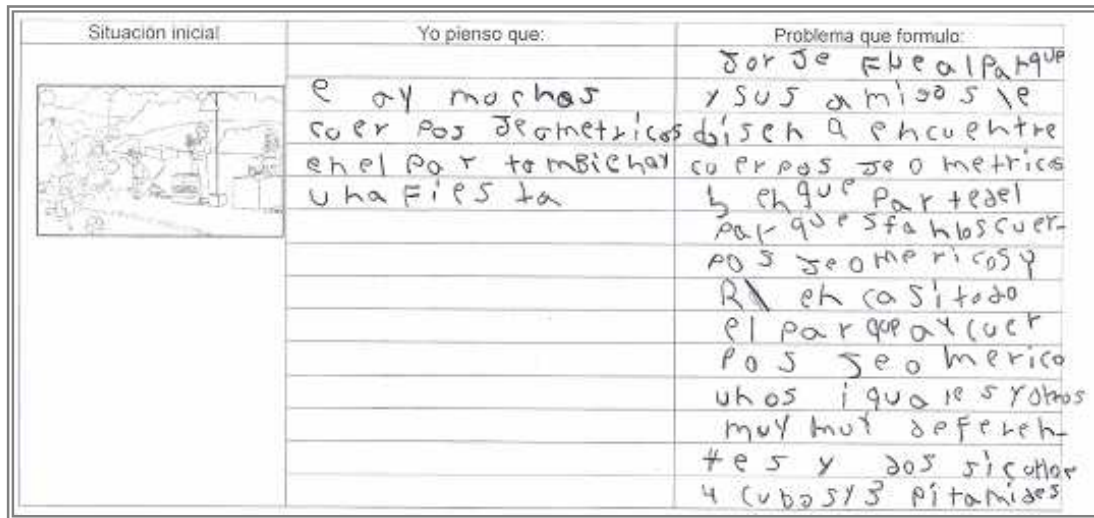 Situación inicial
Yo pienso que:
e ay muchas
cuer pos Jeometricos
en el par tambien ay
una Fies ta
Problema que formulo:
Jor Je Fue al Parque
y sus amigos le
disen a encuentre
cuerpos Jeo metrico
y en que Parte del
par que stan los cuer-
pos Jeo me ricos y
R en casi todo
el par que ay cuer
Pos Jeo merico
unos iguales y otros
muy muy deferen-
tes y dos
4 cubos y 3 pitamides